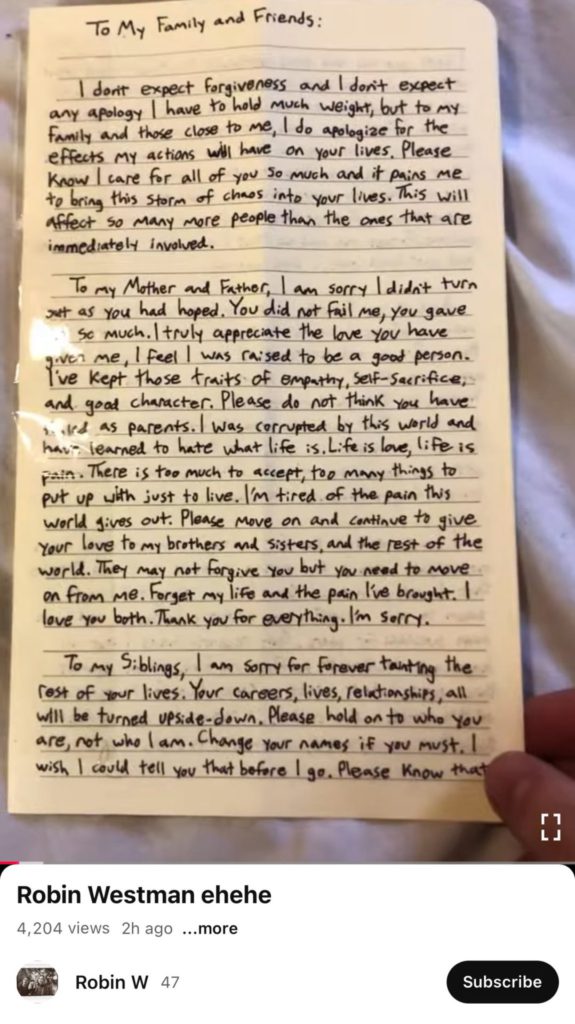 To My Family and Friends:
I don't expect forgiveness and I don't expect
any apology I have to hold much weight, but to my
family and those close to me, I do apologize for the
effects my actions will have on your lives. Please
Know I care for all of you so much and it pains me
to bring this storm of chaos into your lives. This will
affect so many more people than the ones that are
immediately involved.
To my Mother and Father, I am sorry I didn't turn
out as you had hoped. You did not fail me, you gave
so much. I truly appreciate the love you have
given me, I feel I was raised to be a good person.
I've kept those traits of empathy, self-sacrifice,
and good character. Please do not think you have
as parents. I was corrupted by this world and
have learned to hate what life is. Life is love, life is
pain. There is too much to accept, too many things to
put up with just to live. I'm tired of the pain this
world gives out. Please move on and continue to give
your love to my brothers and sisters, and the rest of the
world. They may not forgive you but you need to move
on from me. Forget my life and the pain I've brought. I
love you both. Thank you for everything. I'm sorry.
To my Siblings, I am sorry for forever tainting the
rest of your lives. Your careers, lives, relationships, all
will be turned upside-down. Please hold on to who you
are, not who I am. Change your names if you must. I
wish I could tell you that before I go. Please Know that
Robin Westman ehehe
4,204 views 2h ago ...more
Robin W 47
Subscribe